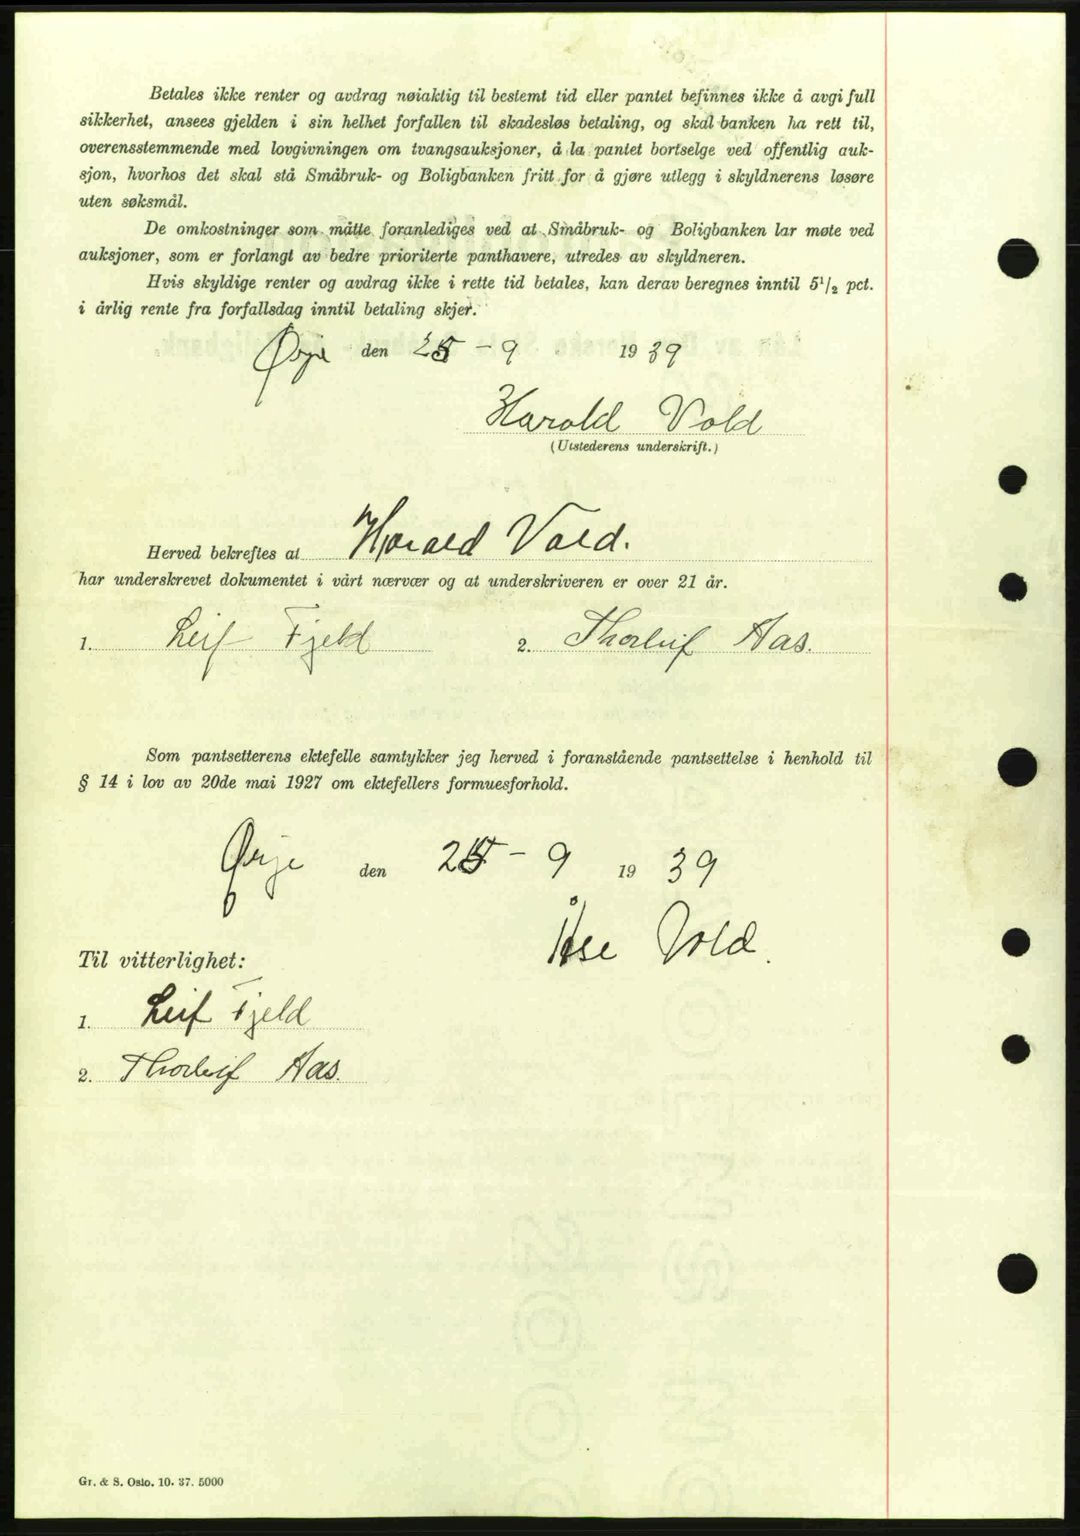 Betales ikke renter og avdrag nøiaktig til bestemt tid eller pantet befinnes ikke å avgi full
sikkerhet, ansees gjelden i sin helhet forfallen til skadesløs betaling, og skal banken ha rett til,
overensstemmende med lovgivningen om tvangsauksjoner, å la pantet bortselge ved offentlig auk-
sjon, hvorhos det skal stå Småbruk- og Boligbanken fritt for å gjøre utlegg i skyldnerens løsøre
uten søksmål.
De omkostninger som måtte foranlediges ved at Småbruk- og Boligbanken lar møte ved
auksjoner, som er forlangt av bedre prioriterte panthavere, utredes av skyldneren.
Hvis skyldige renter og avdrag ikke i rette tid betales, kan derav beregnes inntil 5 1/2 pct.
i årlig rente fra forfallsdag inntil betaling skjer.
Ørje den 25 - 9 1939
Harald Vold
(Utstederens underskrift.)
Herved bekreftes at Harald Vold.
har underskrevet dokumentet i vårt nærvær og at underskriveren er over 21 år.
1. Leif Fjeld 2. Thorleif Aas.
Som pantsetterens ektefelle samtykker jeg herved i foranstående pantsettelse i henhold til
§ 14 i lov av 20de mai 1927 om ektefellers formuesforhold.
Ørje den 25 - 9 1939
Åse Vold.
Til vitterlighet:
1. Leif Fjeld
2. Thorleif Aas.
Gr. & S. Oslo. 10. 37. 5000